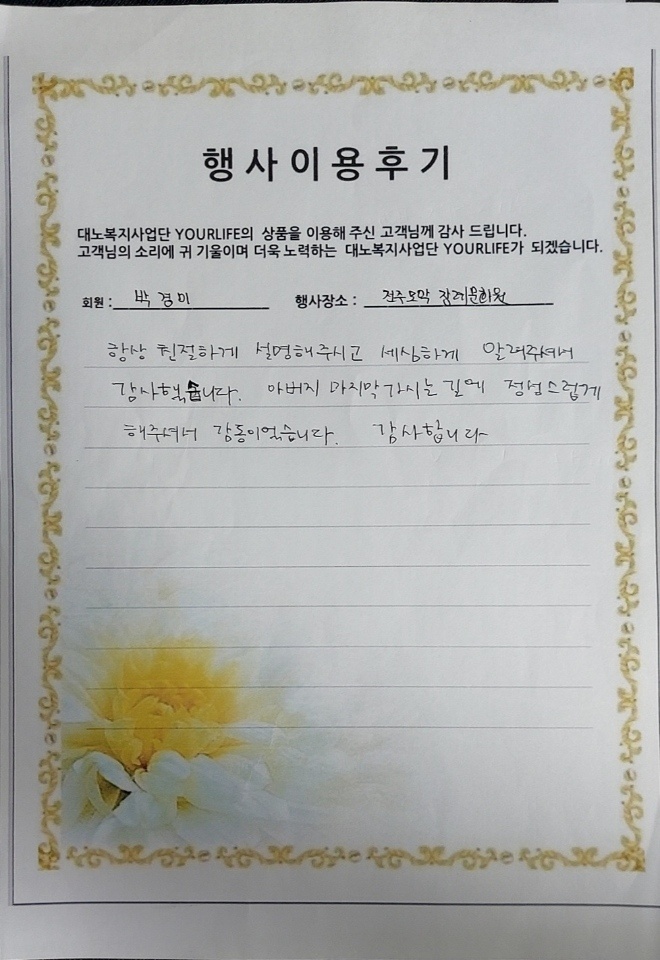 행사이용후기
대노복지사업단 YOURLIFE의 상품을 이용해 주신 고객님께 감사 드립니다.
고객님의 소리에 귀 기울이며 더욱 노력하는 대노복지사업단 YOURLIFE가 되겠습니다.
회원 : 박경미 행사장소 : 전주모악 장례문화원
항상 친절하게 설명해주시고 세심하게 알려주셔서
감사했습니다. 아버지 마지막 가시는 길에 정성스럽게
해주셔서 감동이었습니다. 감사합니다